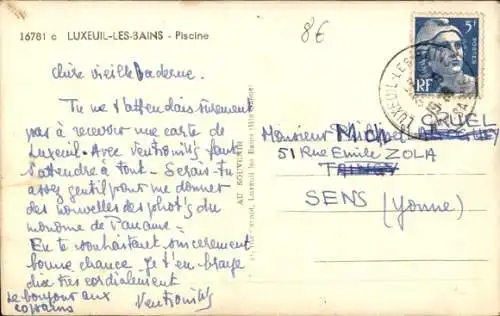 16781 c LUXEUIL-LES-BAINS - Piscine
8€
Chère vieille baderne.
Tu ne t'attendais sûrement
pas à recevoir une carte de
Luxeuil. Avec Ventronitis faut
s'attendre à tout. Serais-tu
assez gentil pour me donner
des nouvelles des phot's du
monome de Paname.
En te souhaitant sincèrement
bonne chance. Je t'en
dix très cordialement
Ventronitis
Le bonjour aux
copains
AU SOUVENIR
Luxeuil-les-Bains
5F
POSTES
RF
LUXEUIL-LES
CRUEL
Monsieur Michel
51 Rue Emile ZOLA
SENS (Yonne)